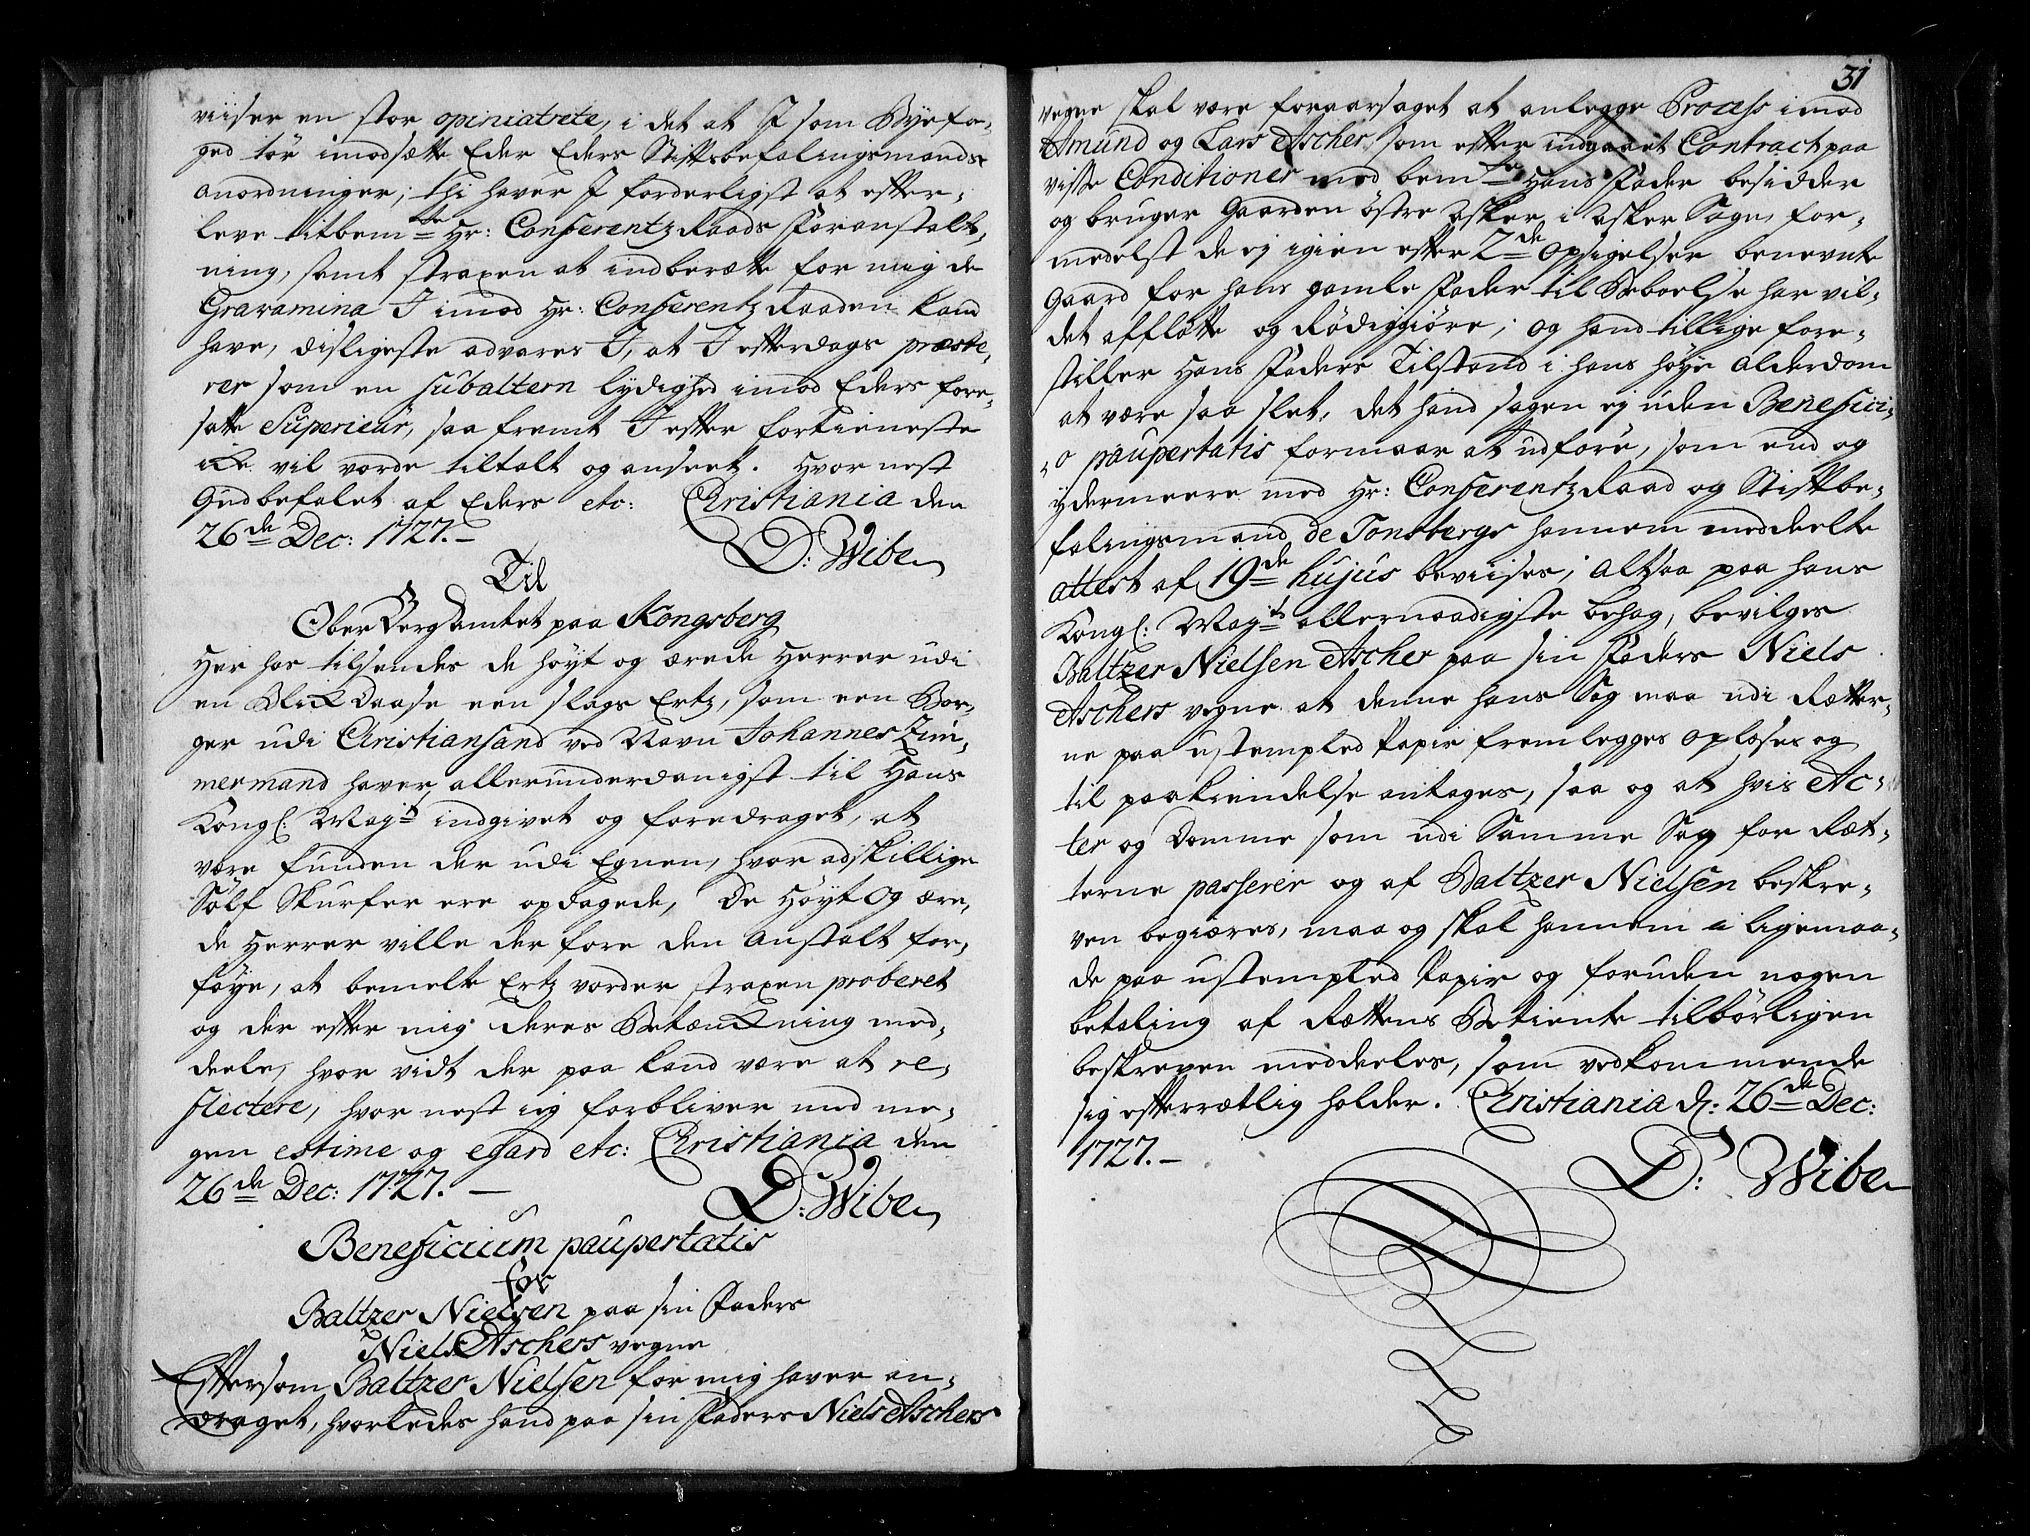 viiser en stor opiniatrete, i det at I som Byefo-
ged tör imodsætte Eder Eders Stiftsbefalingsmands
anordninger; thi haver I forderligst at efter-
leve titbemte Hr: Conferentz Raads Foranstalt-
ning, samt straxen at indberætte for mig de
Gravamina I imod Hr: Conferentz Raaden kand
have, disligeste advares I, at I efterdags præste-
rer som en subaltern lydighed imod Eders fore-
satte Superieur, saa fremt I efter fortieneste
icke vil vorde tiltalt og anseet. Hvor nest
Gudbefalet af Eders etc: Christiania den
26de Dec: 1727.-
D: Wibe
Til
Ober Berg Amtet paa Kongsberg
Her hos tilsendes de höyt og ærede Herrer udi
en Blick Daase een slags Ertz, som een Bor-
ger udi Christiansand ved Navn Johannes Zim-
mermand haver allerunderdanigst til Hans
Kongl: Mayts indgivet og foredraget, at
være funden der udi Egnen, hvor adskillige
Sölf Skurfer ere opdagede, De Höyt og ære-
de Herrer ville der fore den Anstalt for-
föye, at bemelte Ertz vorder straxen proberet
og der efter mig deres Betænckning med-
deele, hvor vidt der paa kand være at re-
flectere, hvor nest ieg forbliver med me-
gen estime og egard etc: Christiania den
26de Dec: 1727. -
D: Wibe
Beneficium paupertatis
for
Baltzer Nielsen paa sin Faders
Niels Aschers vegne
Eftersom Baltzer Nielsen for mig haver an-
draget, hvorledes hand paa sin Faders Niels Aschers
31
vegne skal være foraarsaget at anlegge Process imod
Amund og Lars Ascher, som efter indgaaet Contract paa
visse Conditioner med bemte Hans Fader besidder
og bruger Gaarden östre Asker i Asker Sogn, for-
medelst de ej igien efter 2de opsigelser benevnte
Gaard for hans gamle Fader til Beboelse har vil-
det afflötte og Rödiggiöre; og hand tillige fore-
stiller Hans Faders Tilstand i hans höye Alderdom
at være saa slet, det hand sagen ej uden Benefici-
o paupertatis formaar at udföre, som end og
ydermeere med Hr: Conferentz Raad og Stiftbe-
falingsmand de Tonsbergs hannem meddeelte
attest af 19de hujus beviises; Altsaa paa Hans
Kongl: Mayts allernaadigste behag, bevilges
Baltzer Nielsen Ascher paa sin Faders Niels
Aschers vegne at denne hans Sag maa udi Rætter-
ne paa ustempled Papir fremlegges oplöses og
til paakiendelse antages, saa og at hvis Ac-
ter og Domme som udi Samme Sag for Ræt-
terne passerer og af Baltzer Nielsen beskre-
ven begiæres, maa og skal hannem i ligemaa-
de paa ustempled Papir og foruden nogen
betaling af Rættens Betiente tilbörligen
beskreven meddeeles, som vedkommende
sig efterrætlig holder. Christiania d: 26de Dec:
1727.-
D: Wibe